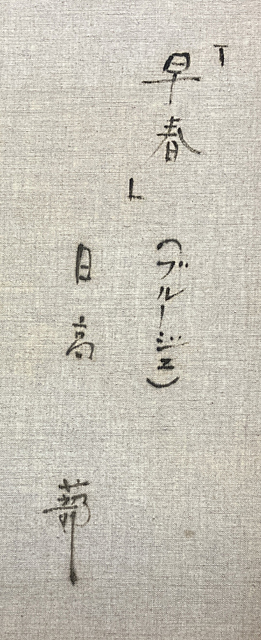 「早春」
(ブルージュ)
日高